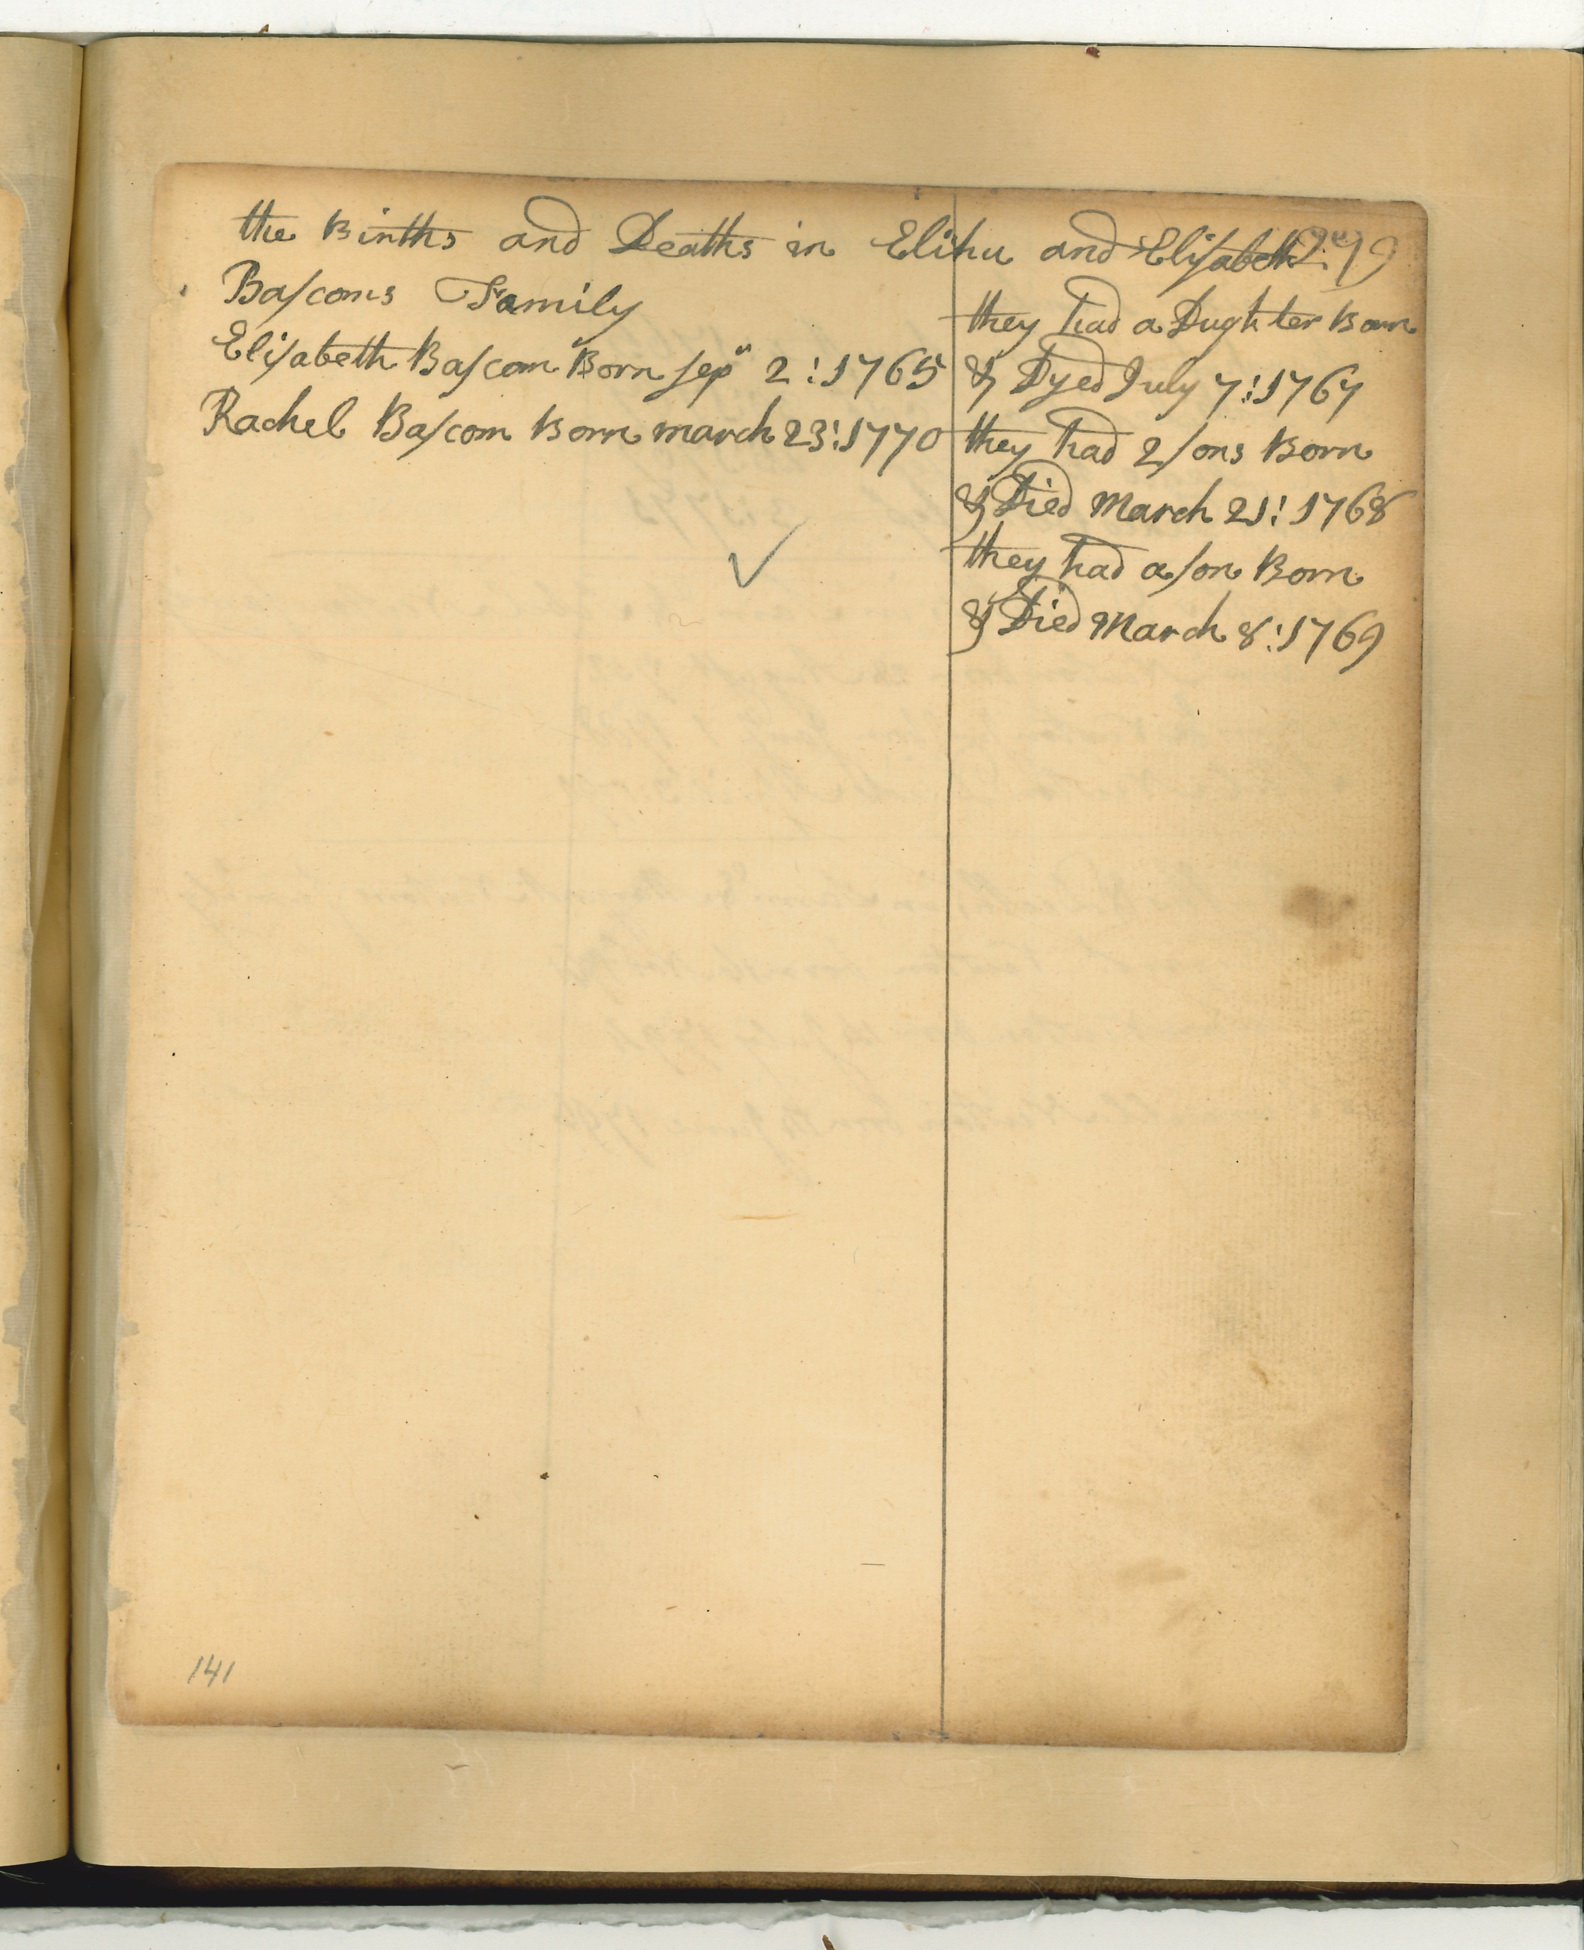 the Births and Deaths in Elihu and Elisabeth
Bascoms Family
Elisabeth Bascom Born sepᵗ 2:1765
Rachel Bascom Born march 23:1770
they had a Dughter Born
& Dyed July 7:1767
they had 2 sons Born
& Died March 21:1768
they had a son Born
& Died March 8:1769
141